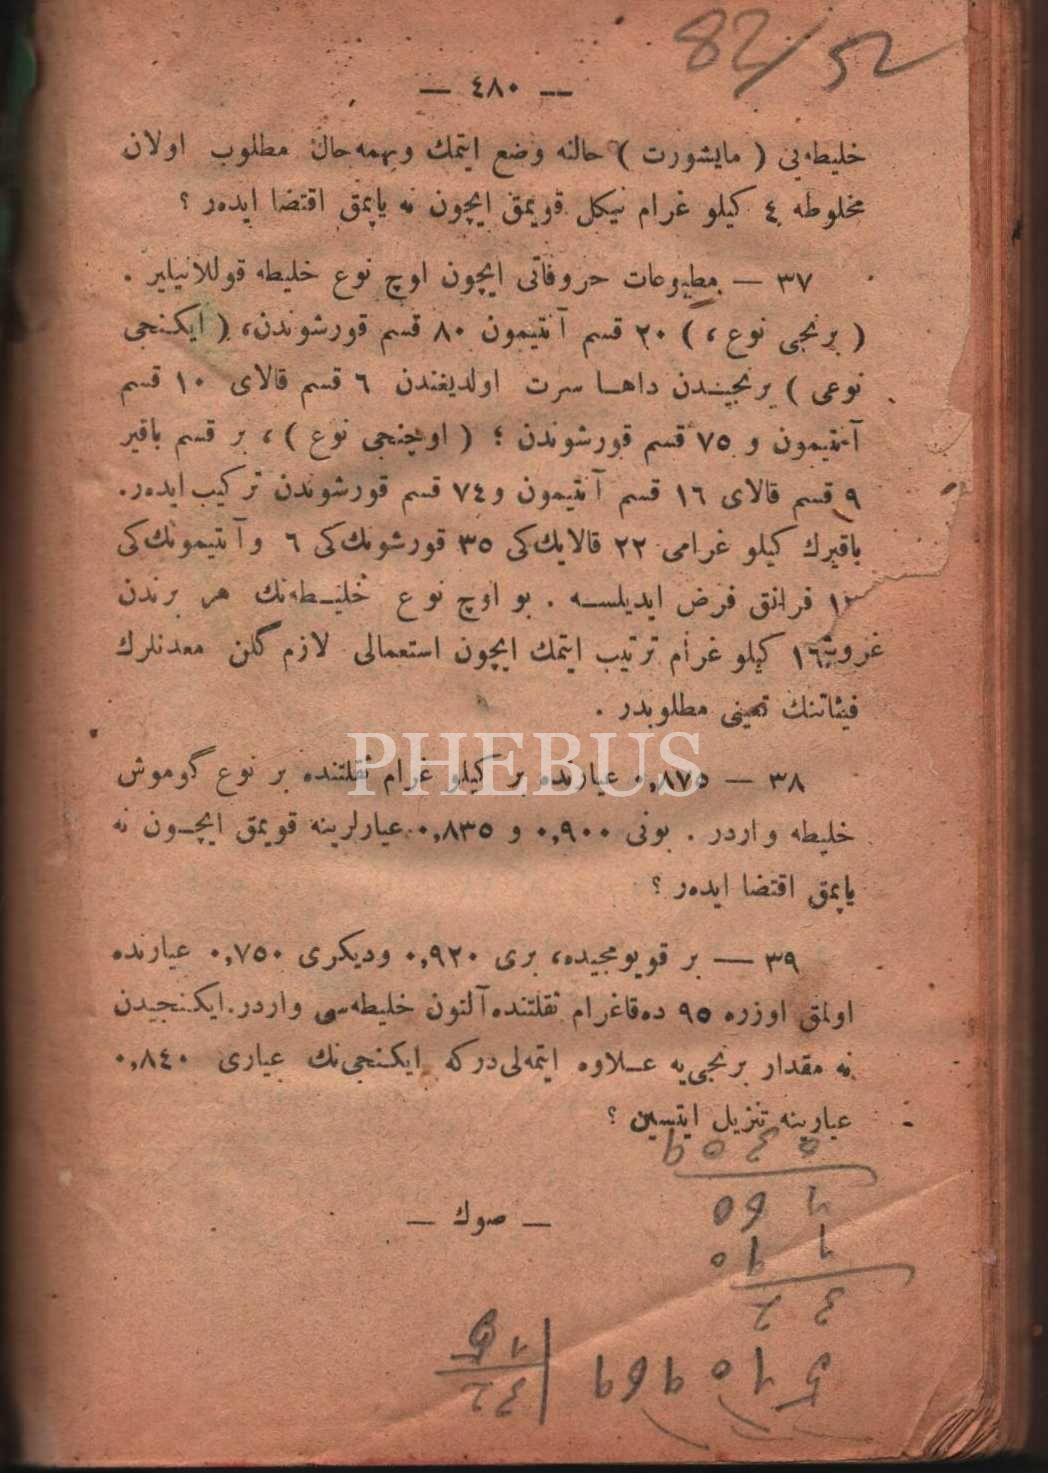 82/52
— ٤٨٠ —
خلیطه‌یی ( مایشورت ) حالنه وضع ایتمك وبهمه‌حال مطلوب اولان
مخلوطه ٤ كیلو غرام نیكل قویمق ایچون نه یاپمق اقتضا ایده‌ر ؟
٣٧ — مطبوعات حروفاتی ایچون اوچ نوع خلیطه قوللانیلیر .
( برنجی نوع ، ) ٢٠ قسم آنتیمون ٨٠ قسم قورشوندن، ( ایكنجی
نوعی ) برنجیـدن داهـا سرت اولدیغندن ٦ قسم قالای ١٠ قسم
آنتیمون و ٧٥ قسم قورشوندن ؛ ( اوچنجی نوع ) ، بر قسم باقیر
٩ قسم قالای ١٦ قسم آنتیمون و ٧٤ قسم قورشوندن تركیب ایده‌ر.
باقیرك كیلو غرامی ٢٢ قالایك‌كی ٣٥ قورشونك‌كی ٦ وآنتیمونك‌كی
فرانق فرض ایدیلسـه . بو اوچ نوع خلیـطه‌نك هر برندن
١٦ كیلو غرام ترتیب ایتمك ایچون استعمالی لازم گلن معدنلرك
فیئاتنك تعیینی مطلوبدر .
٣٨ — ٠,٨٧٥ عیارنده بر كیلو غرام ثقلتنده بر نوع گوموش
خلیطه واردر . بونی ٠,٩٠٠ و ٠,٨٣٥ عیارلرینه قویمق ایچـون نه
یاپمق اقتضا ایده‌ر ؟
٣٩ — بر قویومجیده، بری ٠,٩٢٠ ودیكری ٠,٧٥٠ عیارنده
اولمق اوزره ٩٥ ده‌قاغرام ثقلتنده آلتون خلیطه‌سی واردر. ایكنجیدن
نه مقدار برنجی‌یه عـلاوه ایتمه‌لی‌در كه ایكنجی‌نك عیاری ٠,٨٤٠
عیارینه تنزیل ایتسین ؟
— صوك —
PHEBUS